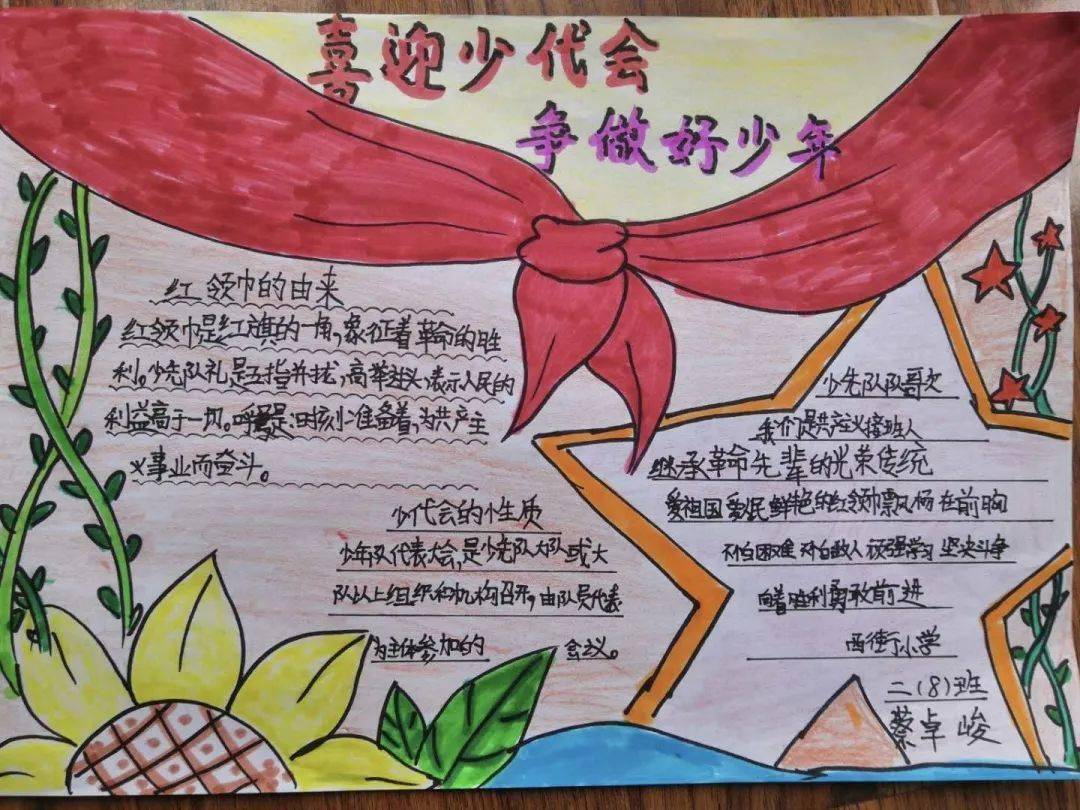 喜迎少代会
争做好少年
红领巾的由来
红领巾是红旗的一角,象征着革命的胜
利。少先队礼是五指并拢,高举过头,表示人民的
利益高于一切。呼号是:时刻准备着,为共产主
义事业而奋斗。
少代会的性质
少年队代表大会,是少先队大队或大
队以上组织和机构召开,由队员代表
为主体参加的 会议。
少先队队哥欠
我们是共产主义接班人
继承革命先辈的光荣传统
爱祖国爱人民鲜艳的红领巾飘扬在前胸
不怕困难不怕敌人顽强学习坚决斗争
向着胜利勇敢前进
西街小学
二(8)班
蔡卓峻